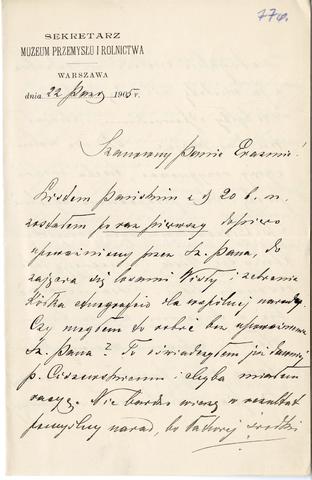 77a.
SEKRETARZ
MUZEUM PRZEMYSŁU I ROLNICTWA
WARSZAWA
dnia 22 Paźdz 1905 r.
Szanowny Panie Erazmie!
Listem Pańskim z d 20 b. m.
zostałem po raz pierwszy dopiero
upoważniony przez Sz. Pana, do
zajęcia się losami Wisły i zebrania
Kółka etnografów dla wspólnej narady.
Czy mogłem to robić bez upoważnienia
Sz. Pana? To oświadczyłem już dawniej
p. Ciszewskiemu i chyba miałem
racyę. Nie bardzo wierzę w rezultat
pomyślny narad, bo
środki